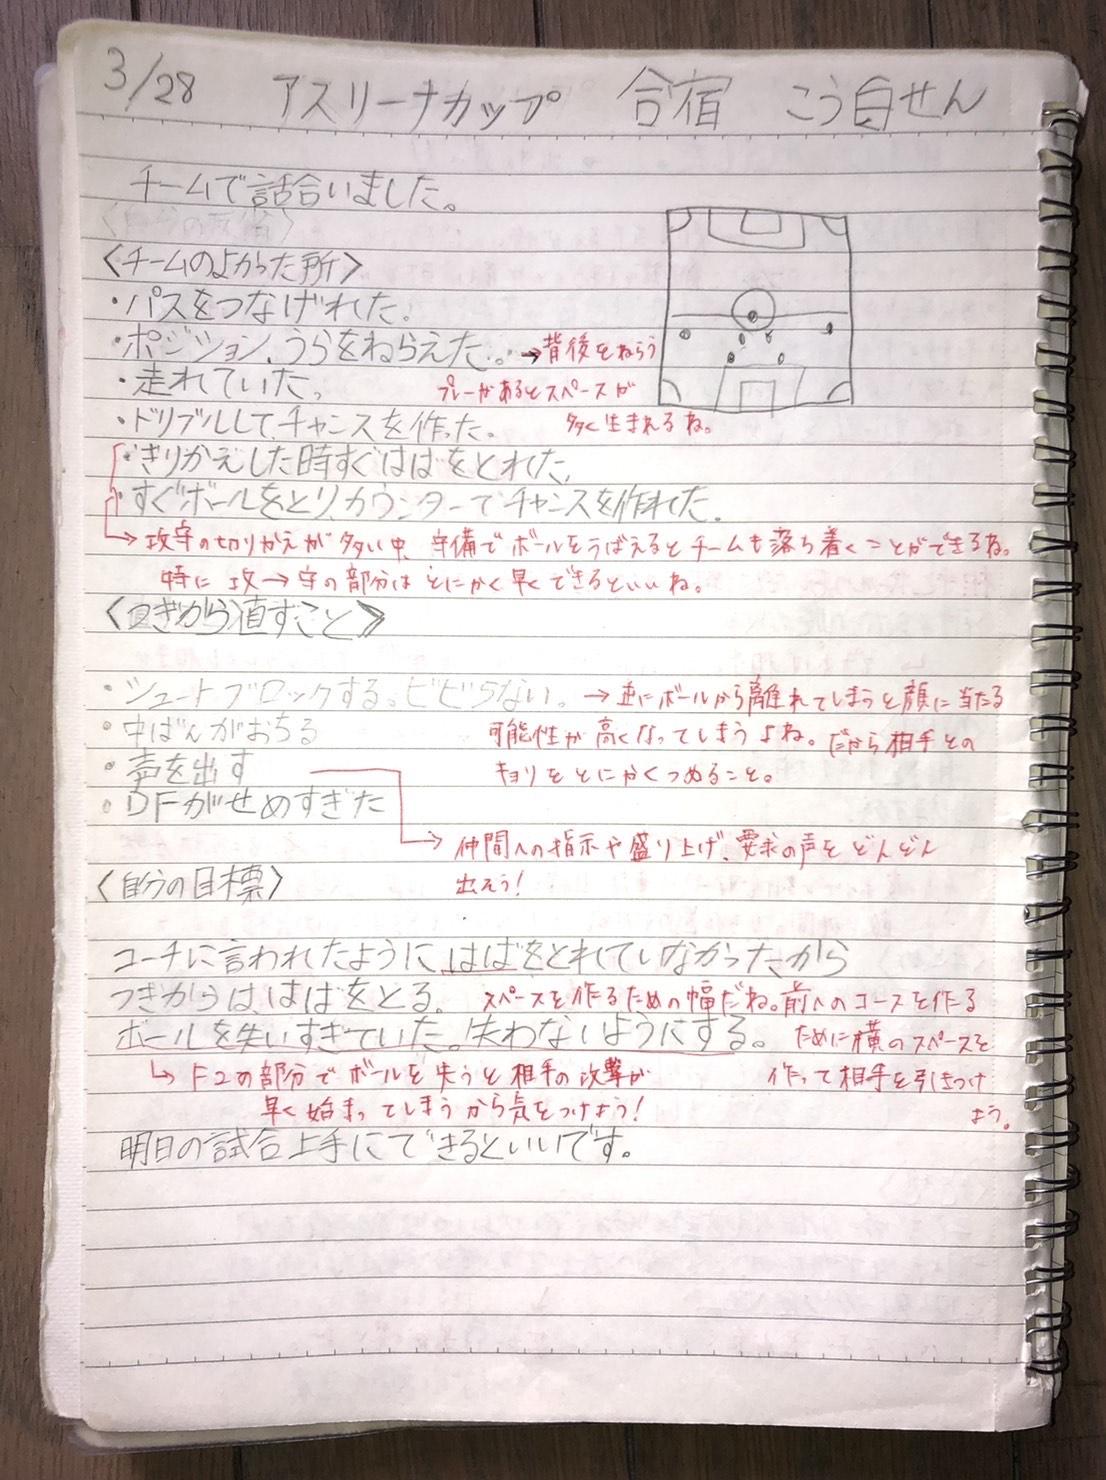 3/28 アスリーナカップ 合宿 こう白せん
チームで話合いました。
〈チームのよかった所〉
・パスをつなげれた。
・ポジション、うらをねらえた。→背後をねらう
プレーがあるとスペースが
多く生まれるね。
・走れていた。
・ドリブルして、チャンスを作った。
・きりかえした時すぐはばをとれた。
・すぐボールをとり、カウンターでチャンスを作れた。
→攻守の切りかえが多い中、守備でボールをうばえるとチームも落ち着くことができるね。
特に攻→守の部分はとにかく早くできるといいね。
〈次ぎから直すこと〉
・シュートブロックする。ビビらない。→逆にボールから離れてしまうと顔に当たる
可能性が高くなってしまうよね。だから相手との
キョリをとにかくつめること。
・中ばんがおちる
・声を出す
・DFがせめすぎた
→仲間への指示や盛り上げ、要求の声をどんどん
出そう!
〈自分の目標〉
コーチに言われたように、はばをとれていなかったから
つぎからは、はばをとる。 スペースを作るための幅だね。前へのコースを作る
ために横のスペースを
作って相手を引きつけ
よう。
ボールを失いすぎていた。失わないようにする。
↳F2の部分でボールを失うと相手の攻撃が
早く始まってしまうから気をつけよう!
明日の試合上手にできるといいです。